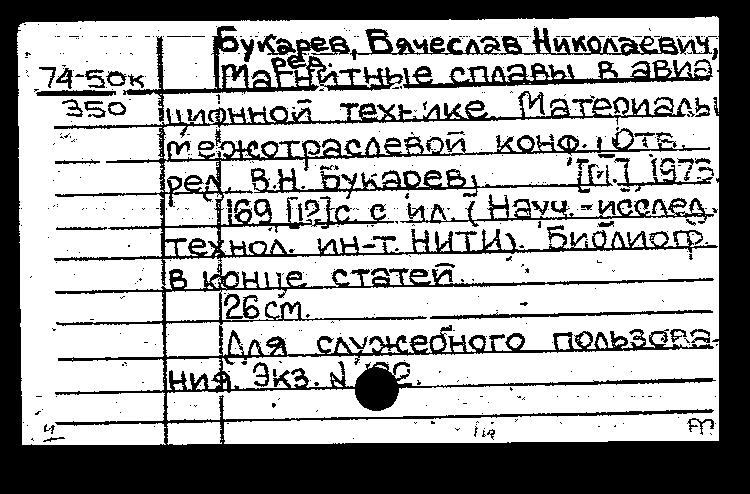 Букарев, Вячеслав Николаевич,
ред.
74-50к Магнитные сплавы в авиа
350 ционной технике. Материалы
межотраслевой конф. Отв.
ред. В.Н. Букарев. [М.], 1973.
169 [12] с. с ил. (Науч.-исслед.
технол. ин-т. НИТИ). Библиогр.
в конце статей.
26 см.
Для служебного пользова-
ния. Экз. N